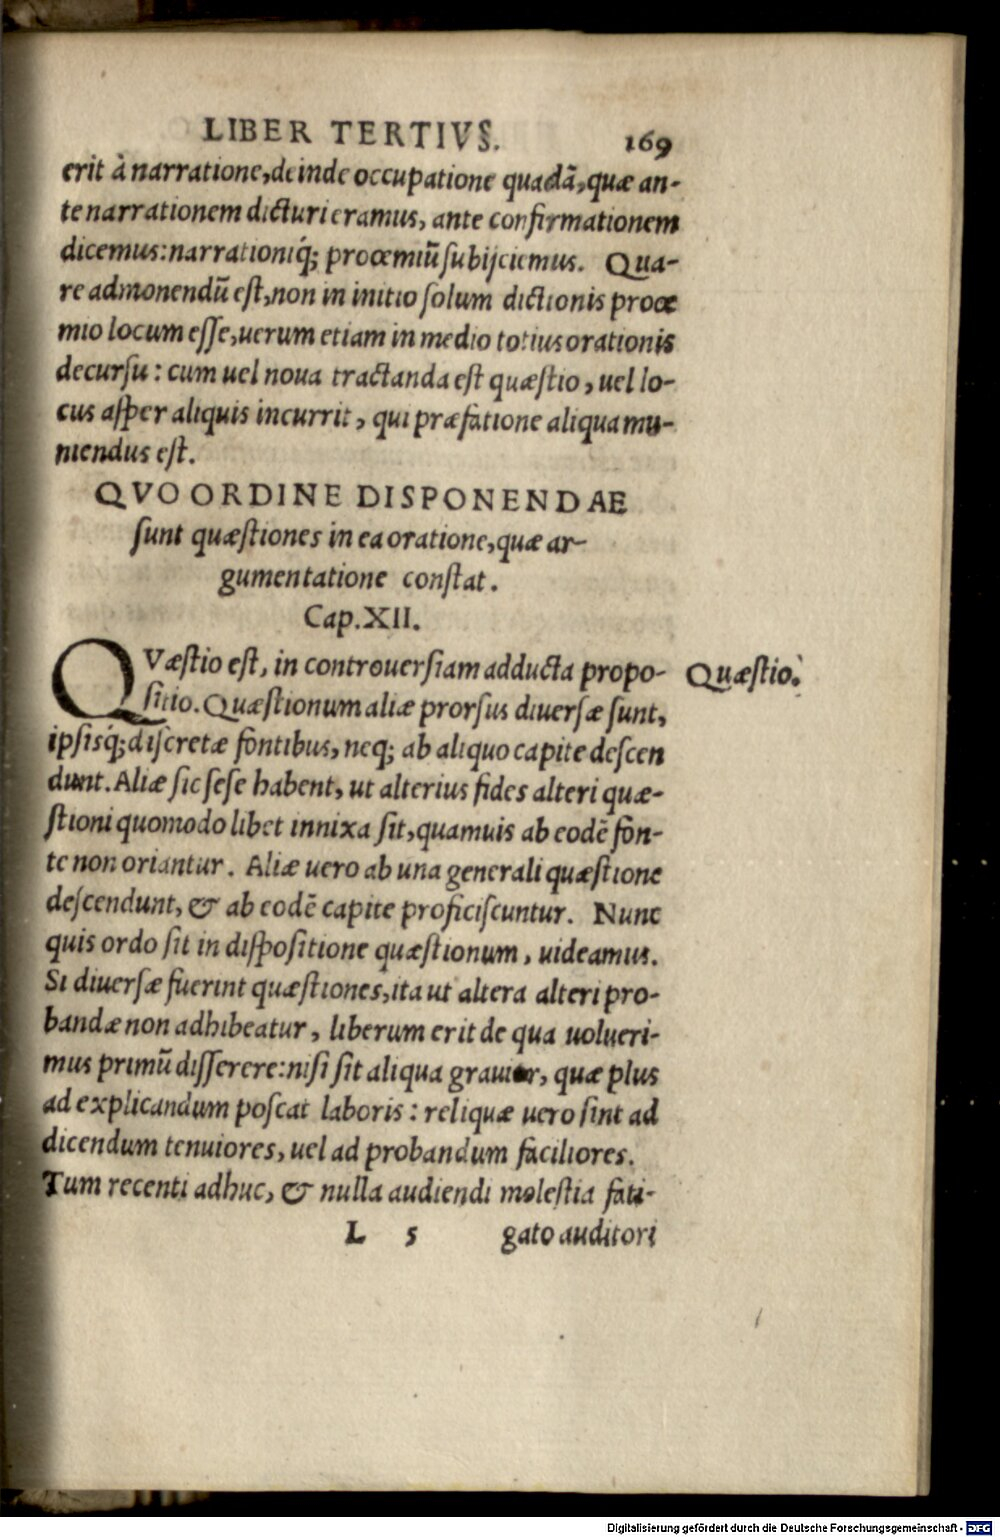 LIBER TERTIVS. 169
erit à narratione, deinde occupatione quadã, quæ an-
te narrationem dicturi eramus, ante confirmationem
dicemus: narrationiq́; proœmiũ subijciemus. Qua-
re admonendũ est, non in initio solum dictionis proœ
mio locum esse, uerum etiam in medio totius orationis
decursu: cum uel noua tractanda est quæstio, uel lo-
cus asper aliquis incurrit, qui præfatione aliqua mu-
niendus est.
QVO ORDINE DISPONENDAE
sunt quæstiones in ea oratione, quæ ar-
gumentatione constat.
Cap. XII.
QVæstio est, in controuersiam adducta propo- Quæstio.
sitio. Quæstionum aliæ prorsus diuersæ sunt,
ipsisq́; discretæ fontibus, neq; ab aliquo capite descen
dunt. Aliæ sic sese habent, ut alterius fides alteri quæ-
stioni quomodo libet innixa sit, quamuis ab eodẽ fon-
te non oriantur. Aliæ uero ab una generali quæstione
descendunt, & ab eodẽ capite proficiscuntur. Nunc
quis ordo sit in dispositione quæstionum, uideamus.
Si diuersæ fuerint quæstiones, ita ut altera alteri pro-
bandæ non adhibeatur, liberum erit de qua uolueri-
mus primũ disserere: nisi sit aliqua grauior, quæ plus
ad explicandum poscat laboris: reliquæ uero sint ad
dicendum tenuiores, uel ad probandum faciliores.
Tum recenti adhuc, & nulla audiendi molestia fati-
L 5 gato auditori
Digitalisierung gefördert durch die Deutsche Forschungsgemeinschaft - DFG